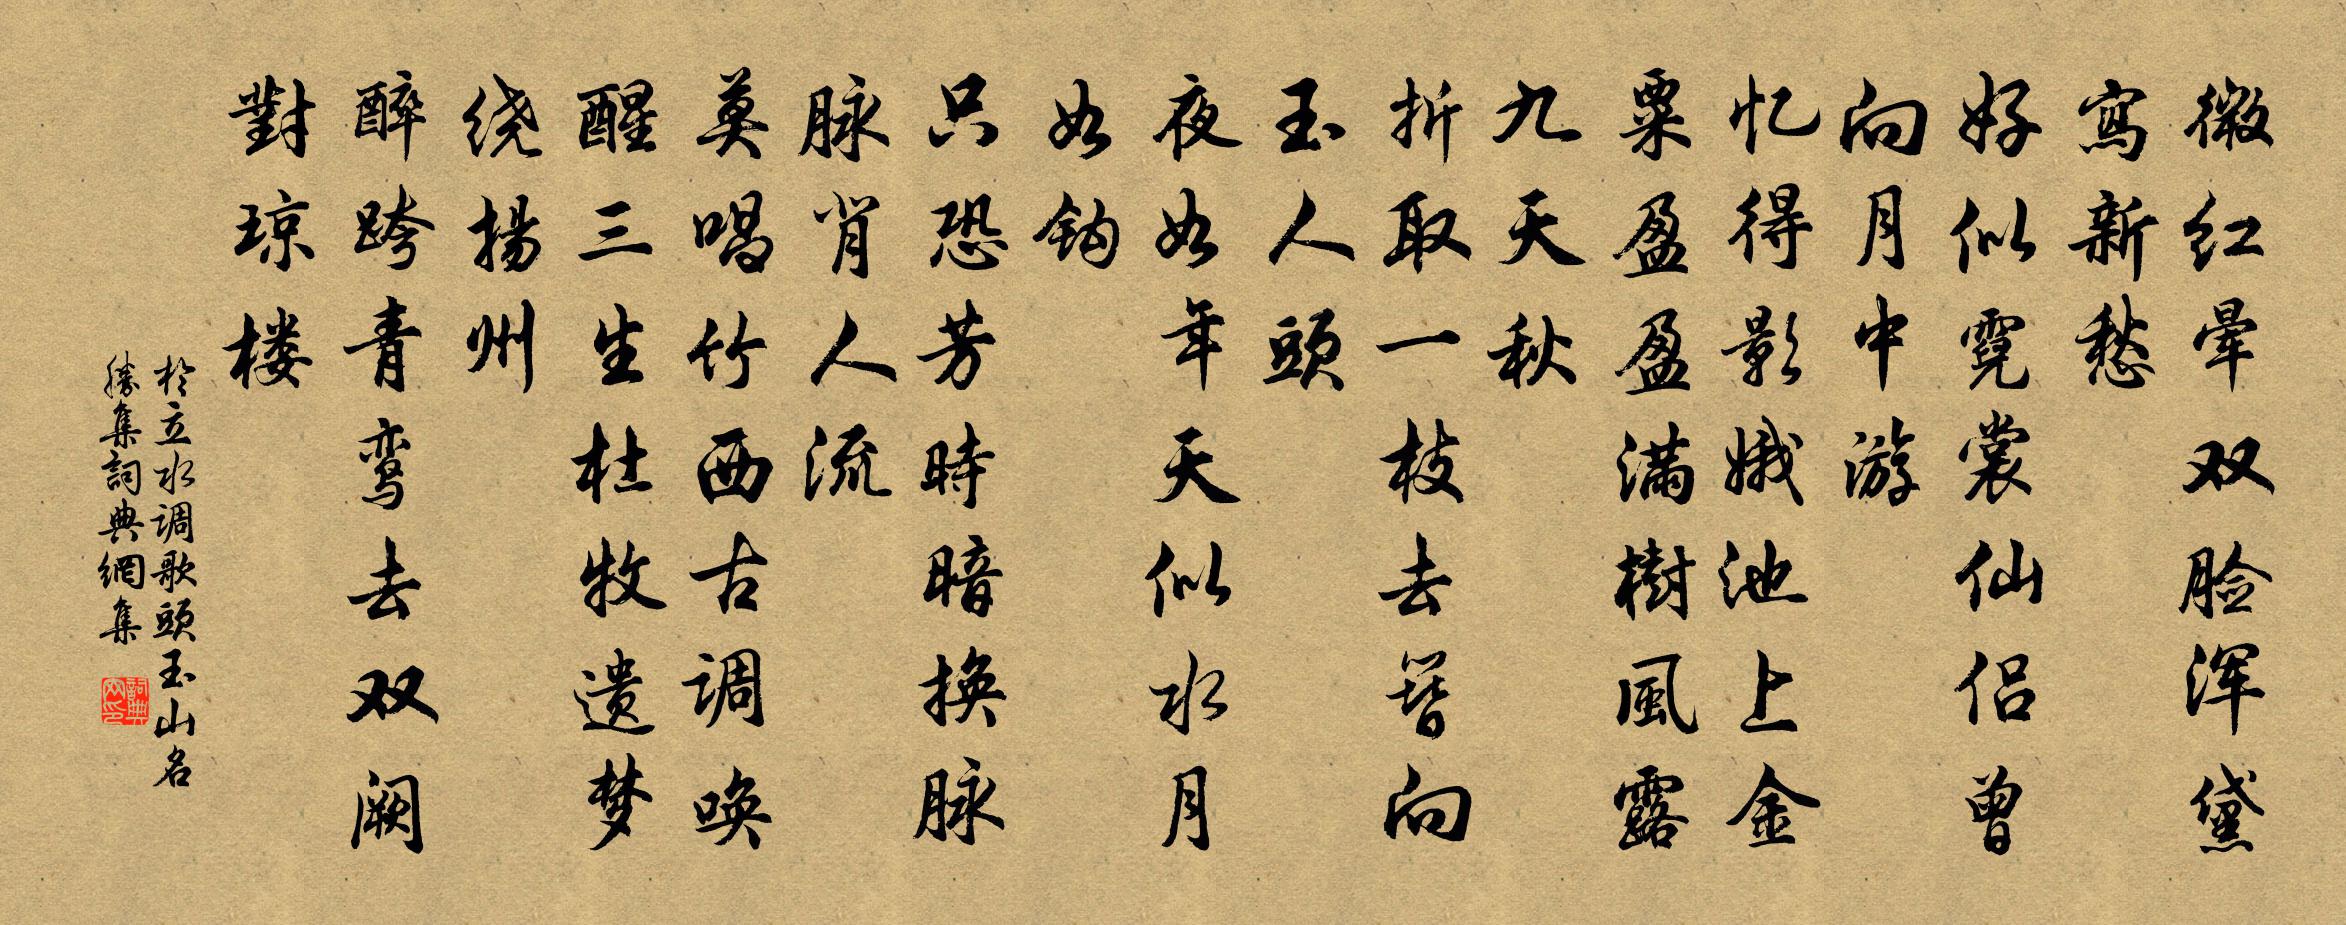 微红晕双脸浑黛
寫新愁
好似霓裳仙侣曾
向月中游
忆得影娥池上金
粟盈盈满樹風露
九天秋
折取一枝去簪向
玉人頭
夜如年天似水月
如钩
只恐芳時暗换脉
脉肖人流
莫唱竹西古调唤
醒三生杜牧遗梦
绕揚州
醉跨青鸾去双阙
對琼楼
於立水调歌頭玉山名
勝集詞典網集
詞典
网印